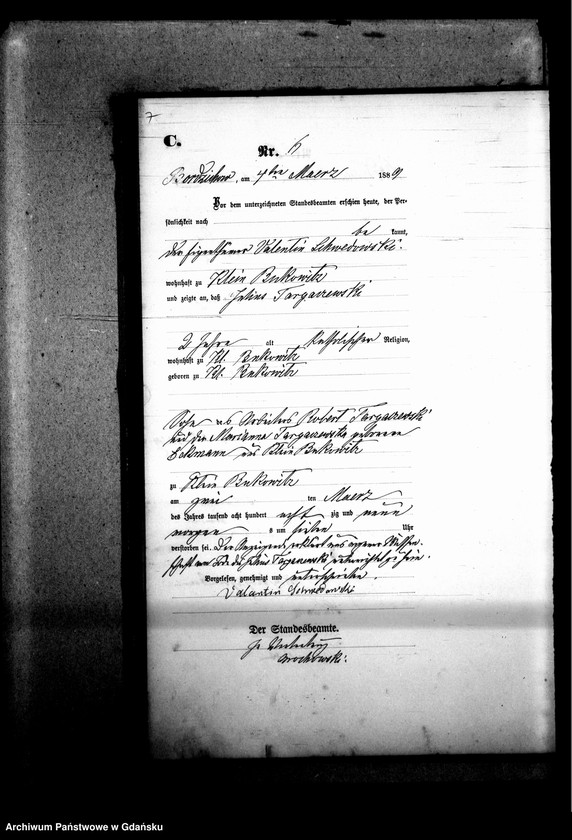 7
C.
Nr. 6
Bordzichow, am 4ten Maerz 1889
Vor dem unterzeichneten Standesbeamten erschien heute, der Per-
sönlichkeit nach
be kannt,
der Eigenthümer Valentin Schwedowski
wohnhaft zu Klein Bukowitz
und zeigte an, daß Julius Targaczewski
2 Jahre alt katholischer Religion,
wohnhaft zu Kl. Bukowitz
geboren zu Kl. Bukowitz
Sohn des Arbeiters Robert Targaczewski
und der Marianna Targaczewska geborene
aus Klein Bukowitz
zu Klein Bukowitz
am zwei ten Maerz
des Jahres tausend acht hundert acht zig und neun
morgens um sieben Uhr
verstorben sei. Der Anzeigende erklärt aus eigener Wissen-
schaft vom Tode des Julius Targaczewski unterrichtet zu sein.
Vorgelesen, genehmigt und unterschrieben.
Valentin Schwedowski
Der Standesbeamte.
In Vertretung
Archiwum Państwowe w Gdańsku